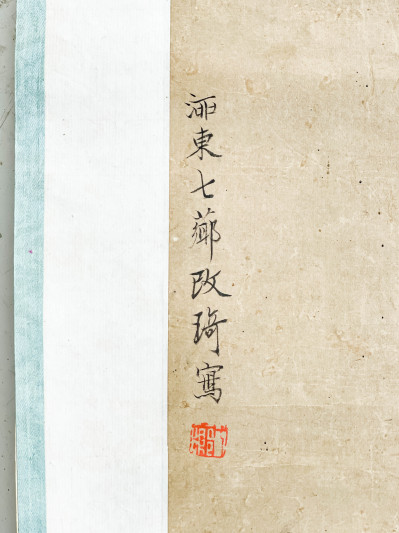 泖東七薌改琦寫